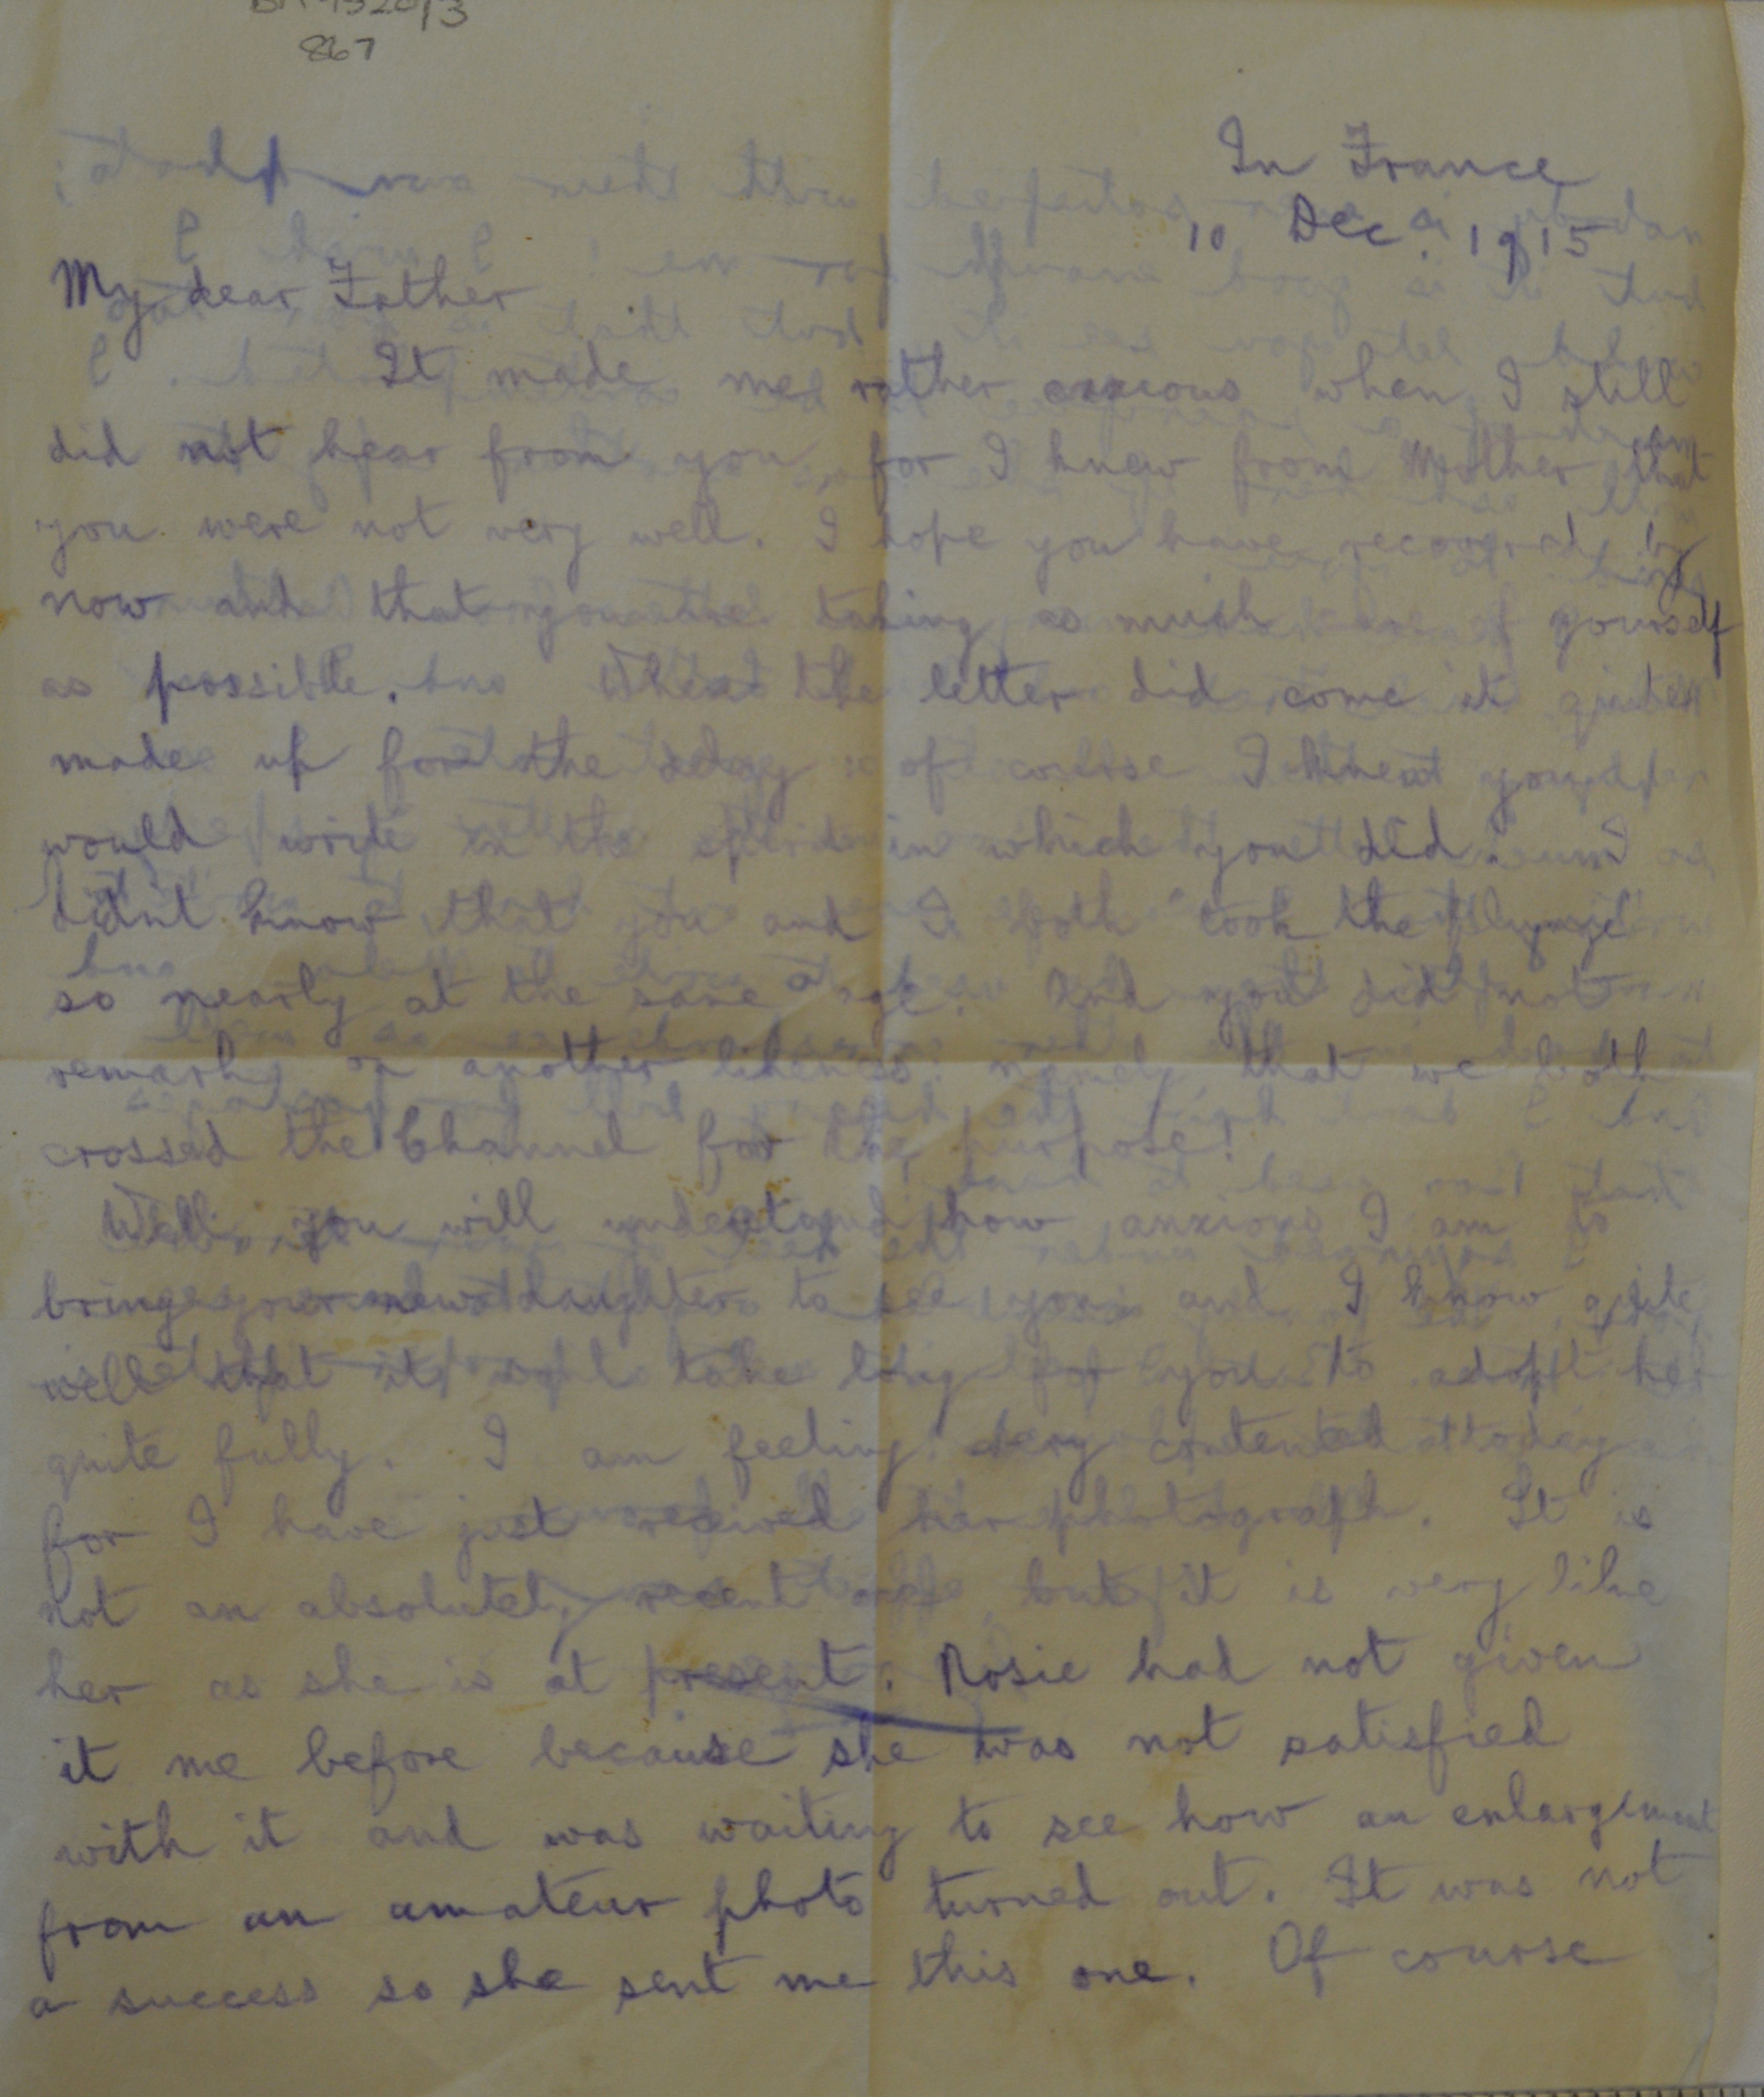 867
In France
10 Dec. 1915
My dear Father
It made me rather anxious when I still
did not hear from you, for I knew from Mother that
you were not very well. I hope you have recovered by
now and that you are taking as much care of yourself
as possible. When the letter did come it quite
made up for the delay: of course I knew you
would write in the spirit in which you did. I
didn't know that you and I both took the plunge
so nearly at the same age. And you did not
remark on another likeness: namely that we both
crossed the Channel for the purpose!
Well, you will understand how anxious I am to
bring your new daughter to see you and I know quite
well that it won't take long for you to adopt her
quite fully. I am feeling very contented today
for I have just received her photograph. It is
not an absolutely recent one, but it is very like
her as she is at present. Rosie had not given
it me before because she was not satisfied
with it and was waiting to see how an enlargement
from an amateur photo turned out. It was not
a success so she sent me this one. Of course